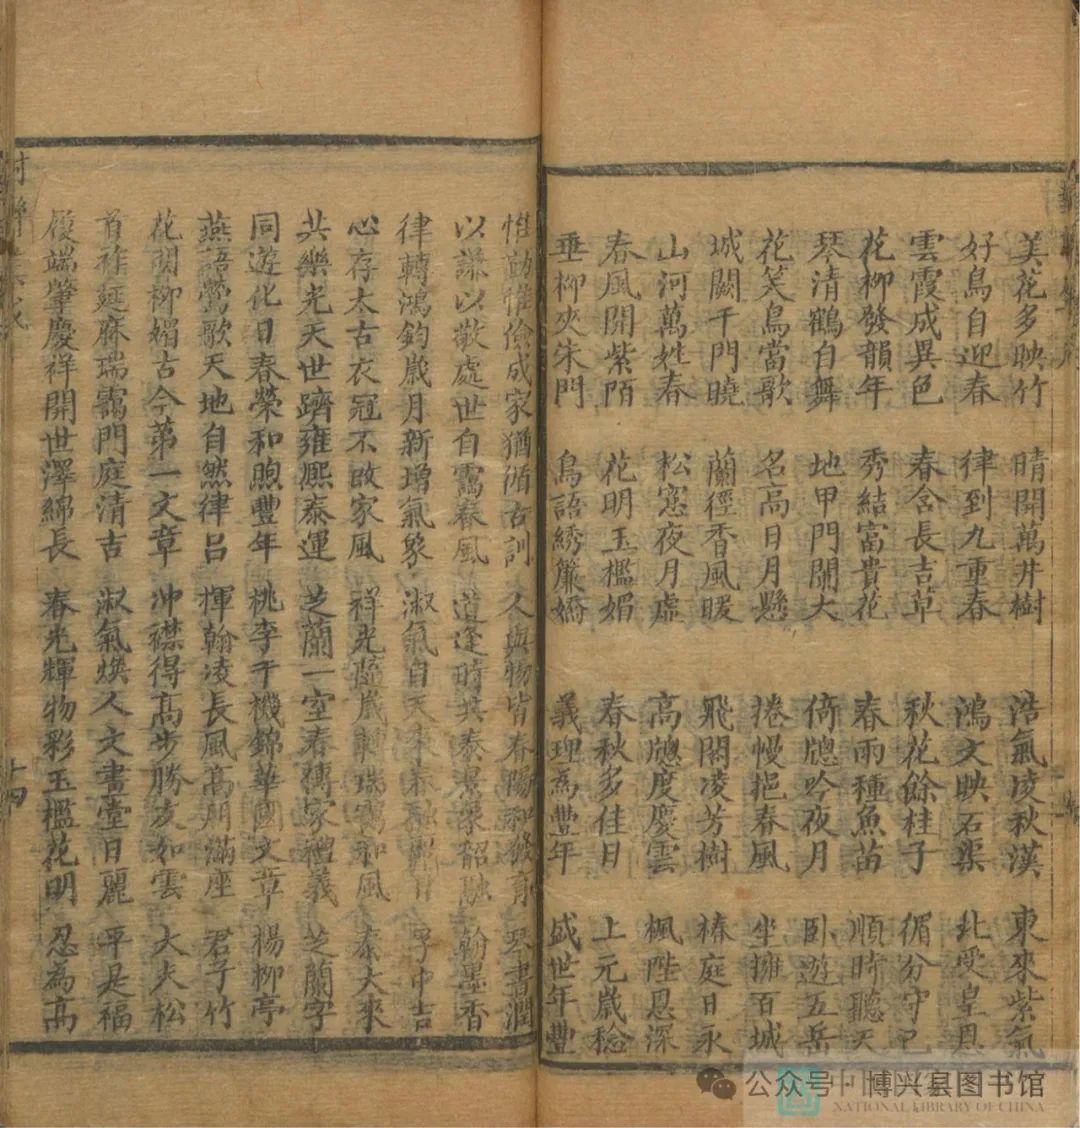 美花多映竹 晴開萬井樹 浩氣凌秋漢 東來紫氣
好鳥自迎春 律到九重春 鴻文映石渠 北受皇恩
雲霞成異色 春含長吉草 秋花餘桂子 偱分守己
花柳發韻年 秀結富貴花 春雨種魚苗 順時聽天
琴清鶴自舞 地甲門閭大 倚牕吟夜月 臥遊五岳
花笑鳥當歌 名高日月懸 捲幔挹春風 坐擁百城
城闕千門曉 蘭徑香風暖 飛閣凌芳樹 椿庭日永
山河萬姓春 松窓夜月虛 高牕度慶雲 楓陛恩深
春風開紫陌 花明玉檻媚 春秋多佳日 上元歲稔
垂柳夾朱門 鳥語綉簾嬌 義理為豐年 盛世年豐
惟勤惟儉成家猶循古訓 人與物皆春陽和發育 琴書潤
以謙以敬處世自靄春風 道逢時共泰景象韶融 翰墨香
律轉鴻鈞歲月新增氣象 淑氣自天來 孚中吉
心存太古衣冠不改家風 祥光隨歲轉瑞靄和風 泰大來
共樂光天世躋雍熙泰運 芝蘭一室春傳家禮義 芝蘭字
同遊化日春榮和煦豐年 桃李千機錦華國文章 楊柳亭
燕語鶯歌天地自然律呂 揮翰凌長風高朋滿座 君子竹
花明柳媚古今第一文章 冲襟得高步勝友如雲 大夫松
首祚延庥瑞靄門庭清吉 淑氣煥人文書堂日麗 平是福
履端肇慶祥開世澤綿長 春光輝物彩玉檻花明 忍為高
十四
公众号·博兴县图书馆
NATIONAL LIBRARY OF CHINA